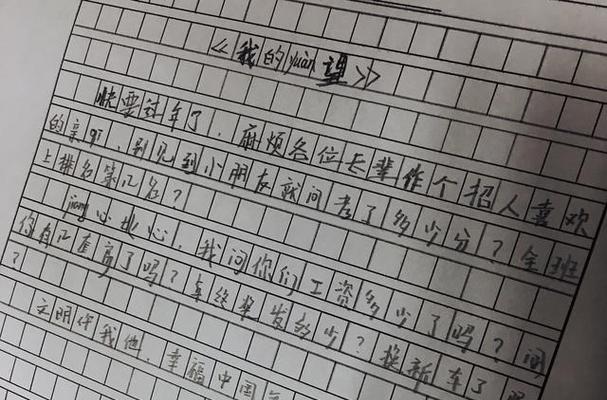 《我的yuàn望》
快要过年了，麻烦各位长辈作个招人喜欢
的亲戚，别见到小朋友就问考了多少分？全班
上排名第几名？
jiāng心比心，我问你们工资多少了吗？问
你有几套房了吗？年终奖发多少？换新车了
？
文明你我他，幸福中国年